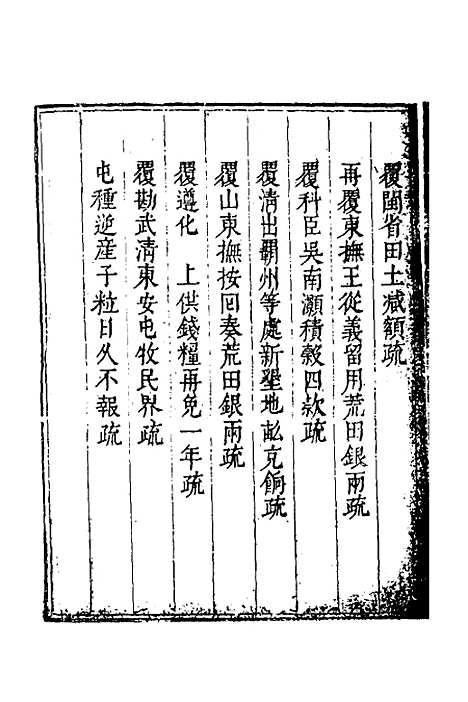 覆閩省田土减額疏
再覆東撫王從義留用荒田銀兩疏
覆科臣吳南灝積穀四款疏
覆清出霸州等處新墾地畝克餉疏
覆山東撫按回奏荒田銀兩疏
覆遵化　上供錢糧再免一年疏
覆勘武清東安屯牧民界疏
屯種逆産子粒日久不報疏